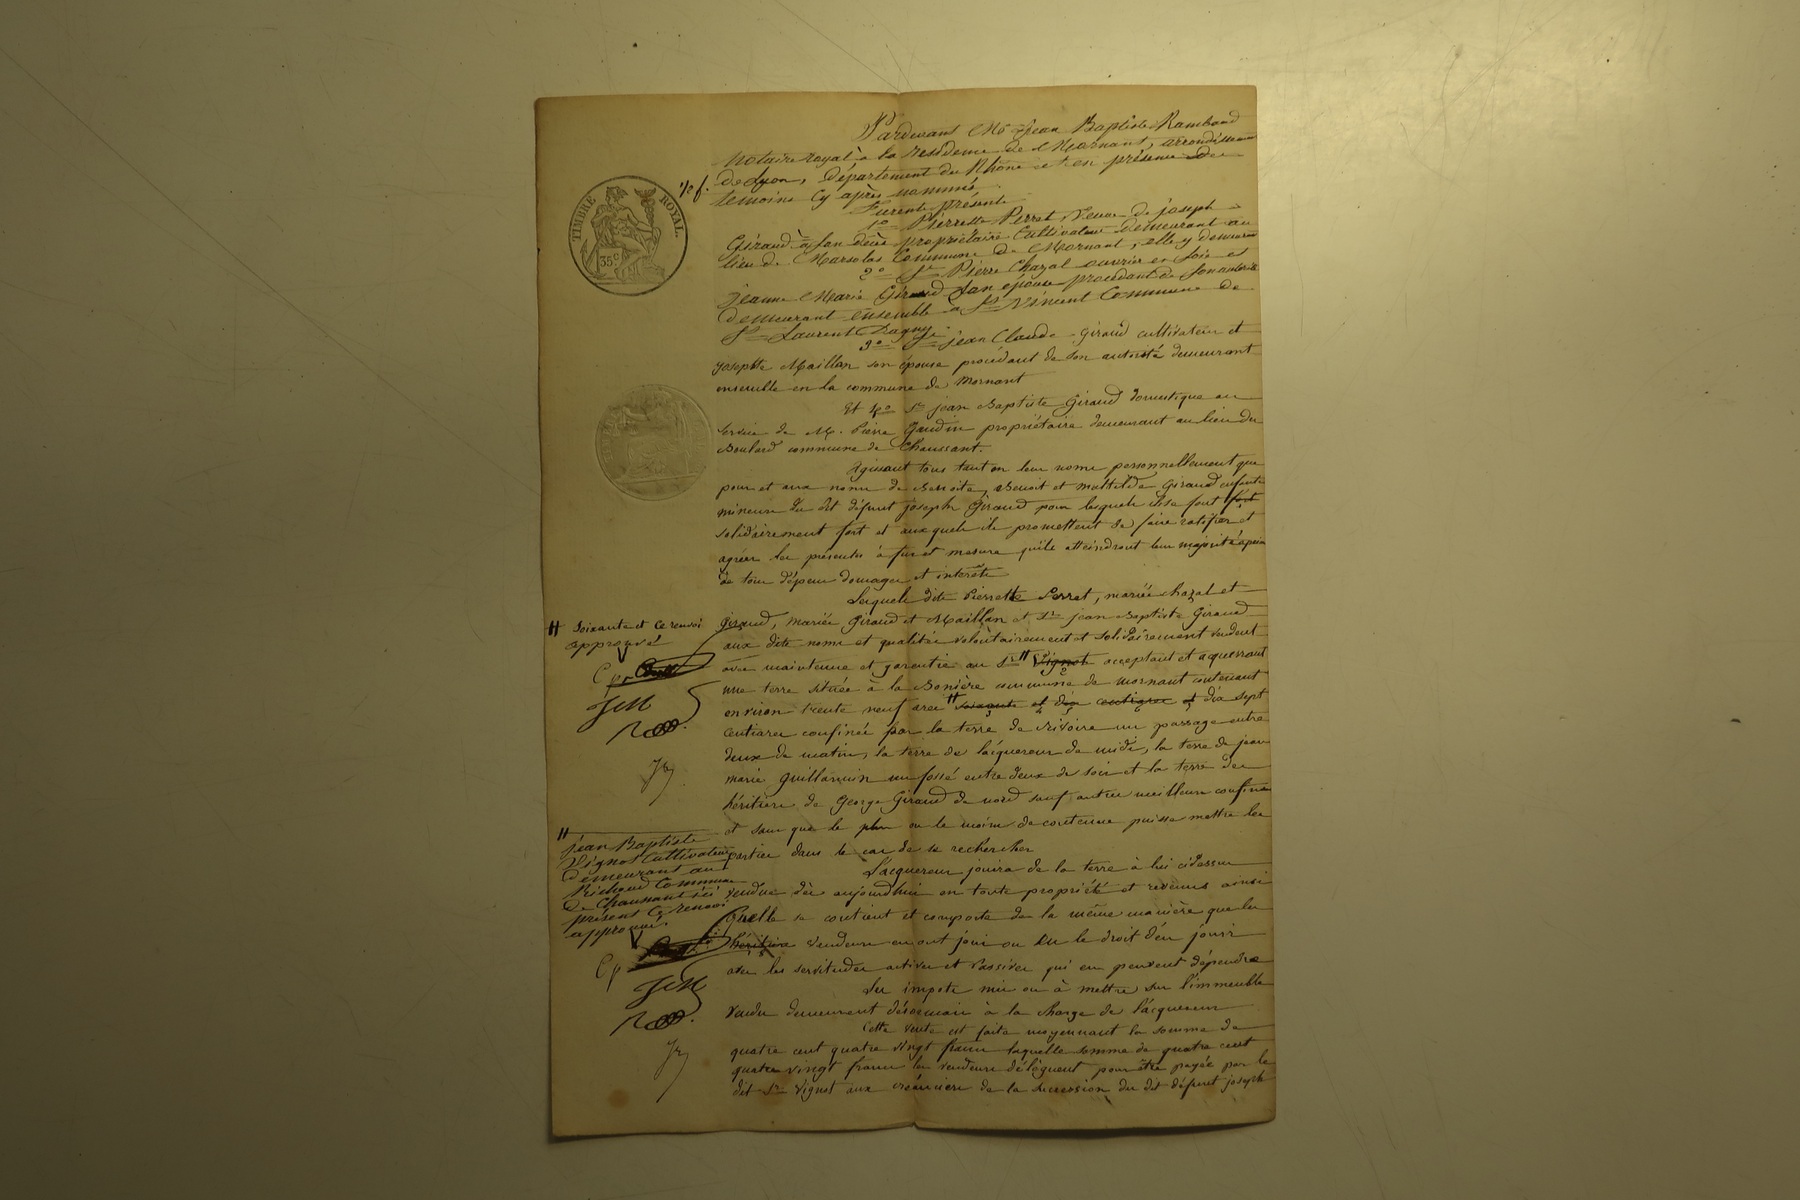 Pardevant Me Jean Baptiste Rambaud
notaire royal à la residence de Mornant, arrondissement
de Lyon, département du Rhône et en présence des
temoins cy après nommés.
TIMBRE ROYAL.
35 c
Furent présents
1o Pierrette Perret, Veuve de joseph
Giraud à son décès propriétaire Cultivateur demeurant au
lieu de Marsolas Commune de Mornant, elle y demeurant
2o Sr Pierre Chazal ouvrier en soie et
Jeanne Marie Giraud son épouse procédant de son autorité
demeurant ensemble à St Vincent Commune de
St Laurent Dagny
3o Sr jean Claude Giraud cultivateur et
josephte Maillan son épouse procédant de son autorité demeurant
ensemble en la commune de Mornant
Et 4o Sr jean Baptiste Giraud domestique au
service de M. Pierre Gaudin propriétaire demeurant au lieu du
Boulard commune de Chaussant.
Agissant tous tant en leur noms personnellement que
pour et aux noms de Benoite, Benoit et Mathilde Giraud enfants
mineurs du dit défunt joseph Giraud pour lesquels ils se font fort
solidairement fort et auxquels ils promettent de faire ratifier et
agréer les présentes à fur et mesure qu'ils atteindront leur majorité à peine
de tous dépens domages et intérêts
Lesquels dits Pierrette Perret, mariés chazal et
giraud, mariés Giraud et Maillan et Sr jean Baptiste Giraud
aux dits noms et qualités volontairement et solidairement vendent
avec maintenue et garantie au Sr # Vignot acceptant et acquerrant
une terre située à la Bonière commune de Mornant contenant
environ trente neuf ares # soixante et dix centiares et dix sept
centiares confinée par la terre de Rivoire un passage entre
deux de matin, la terre de l'acquereur de midi, la terre de jean
marie Guillarmin un fossé entre deux de soir et la terre des
héritiers de George Giraud de nord sauf autres meilleurs confins
et sans que le plus ou le moins de contenue puisse mettre les
parties dans le cas de se rechercher
L'acquereur jouira de la terre à lui cidessus
vendue dès aujourdhui en toute propriété et revenus ainsi
quelle se contient et comporte de la même manière que les
héritiers vendeurs en ont joui ou eu le droit d'en jouir
avec les servitudes actives et passives qui en peuvent dépendre
Les impots mis ou à mettre sur l'immeuble
vendu demeurent désormais à la charge de l'acquereur
Cette vente est faite moyennant la somme de
quatre cent quatre vingt francs laquelle somme de quatre cent
quatre vingt francs les vendeurs délèguent pour être payée par le
dit Sr Vignot aux créanciers de la succession du dit défunt joseph
# Soixante et Ce renvoi
approuvé
# jean Baptiste
Vignot Cultivateur
demeurant au
Richoud Commune
de Chaussant ici
présent Cy renvoi
approuvé